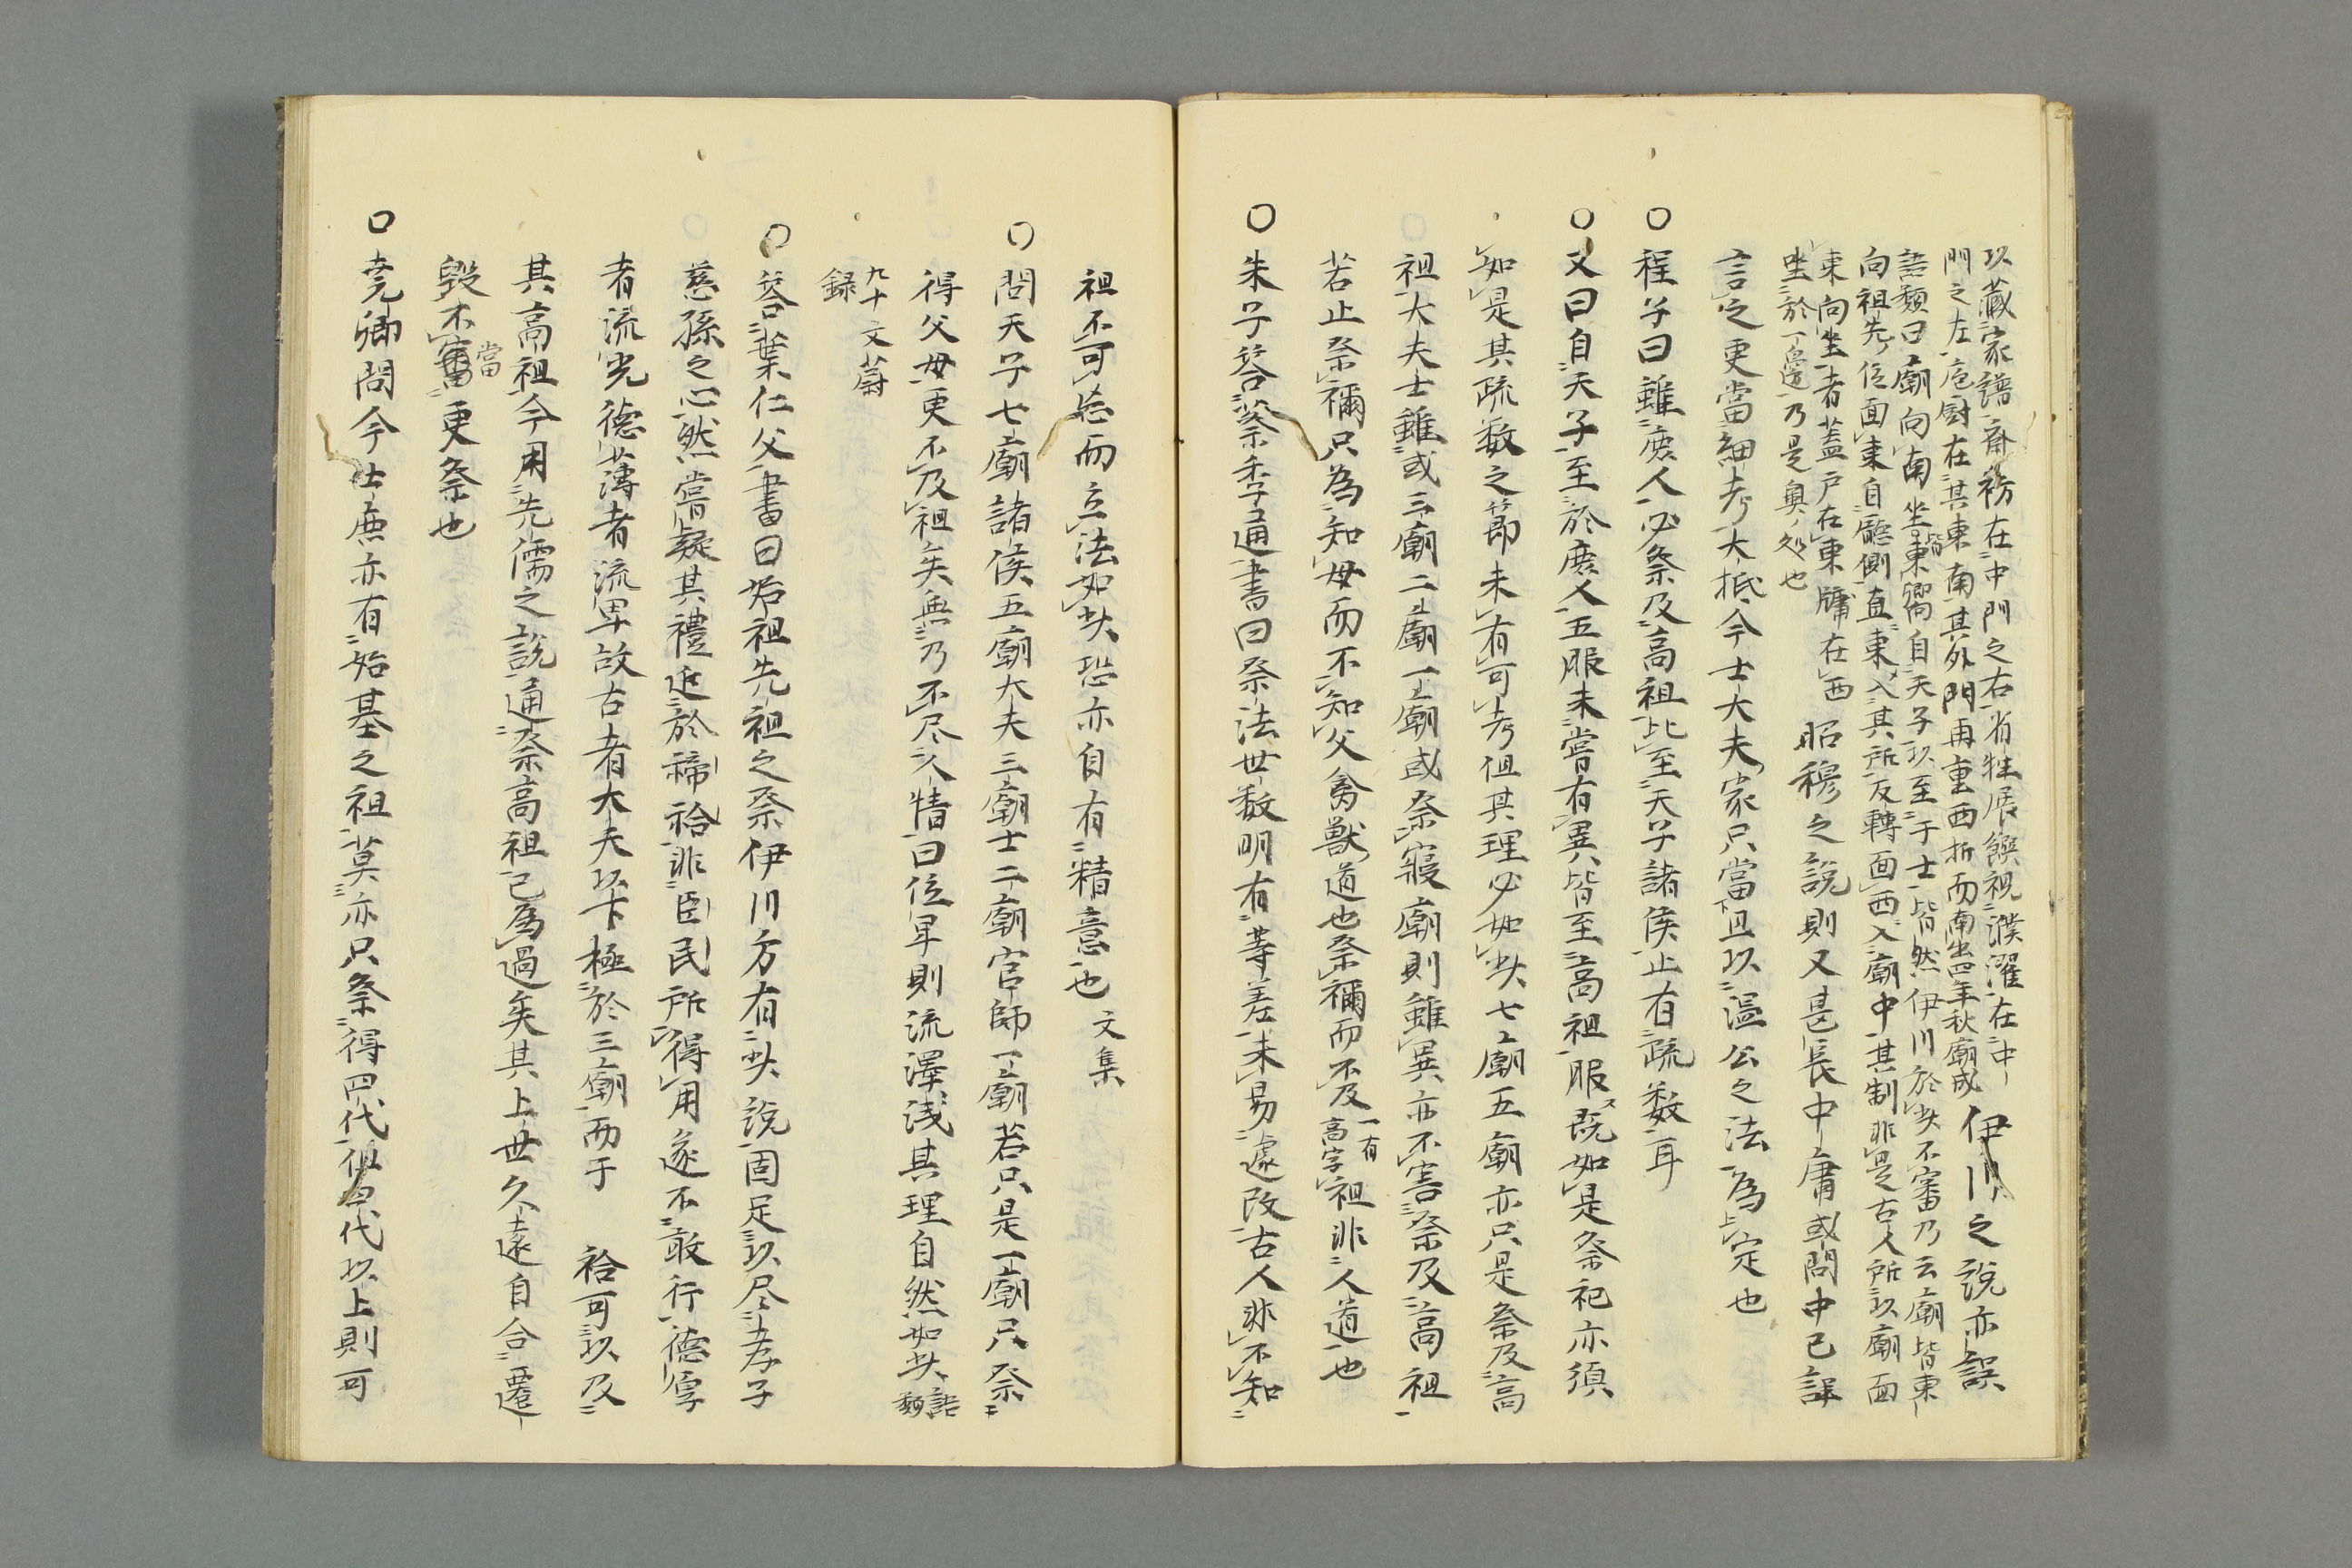 以藏家譜齋祊在中門之右省牲展饌視濯在中
門之左庖厨在其東南其外門再重西折而南出四年秋廟成
伊川之說亦誤
語類曰廟向南坐皆東嚮自天子以至于士皆然伊川於此不審乃云廟皆東
向祖先位面東自廳側直東入其所反轉面西入廟中其制非是古人所以廟面
東向坐者蓋戶在東牖在西
坐於一邊乃是奧処也
昭穆之說則又甚長中庸或問中已詳
言之更當細考大抵今士大夫家只當且以溫公之法為定也
〇程子曰雖庶人必祭及高祖比至天子諸侯止有疏数耳
〇又曰自天子至於庶人五服未嘗有異皆至高祖服既如是祭祀亦須
如是其疏数之節未有可考但其理必如此七廟五廟亦只是祭及高
祖大夫士雖或三廟二廟一廟或祭寢廟則雖異亦不害祭及高祖
若止祭禰只為知母而不知父禽獸道也祭禰而不及一有高字祖非人道也
〇朱子答蔡季通書曰祭法世数明有等差未易遽改古人非不知
祖不可忘而立法如此恐亦自有精意也 文集
〇問天子七廟諸侯五廟大夫三廟士二廟官師一廟若只是一廟只祭
得父母更不及祖矣無乃不尽人情曰位卑則流澤浅其理自然如此 語類
九十 文蔚
録
〇答葉仁父書曰始祖先祖之祭伊川方有此說固足以尽孝子
慈孫之心然嘗疑其禮近於禘祫非臣民所得用遂不敢行德厚
者流光德薄者流卑故古者大夫以下極於三廟而于 祫可以及
其高祖今用先儒之說通祭高祖已為過矣其上世久遠自合遷
毀不當更祭也
〇尭卿問今士庶亦有始基之祖莫亦只祭得四代但四代以上則可